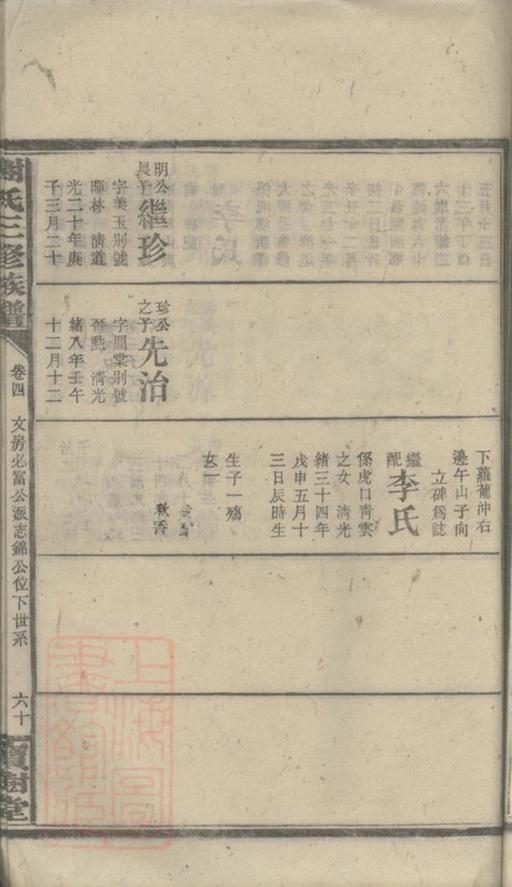 明公
長子
繼珍
字美玉別號
暉林 清道
光二十年庚
子三月二十
珍公
之子
先治
字開棠別號
晉熙 清光
緒八年壬午
十二月十二
下蘿蔔沖右
邊午山子向
立碑爲誌
繼
配
李氏
係虎口靑雲
之女 淸光
緒三十四年
戊申五月十
三日辰時生
生子一殤
女一
秋香
謝氏三修族譜
卷四
文房必富公派志錦公位下世系
六十
寶樹堂
上海圖
書館藏